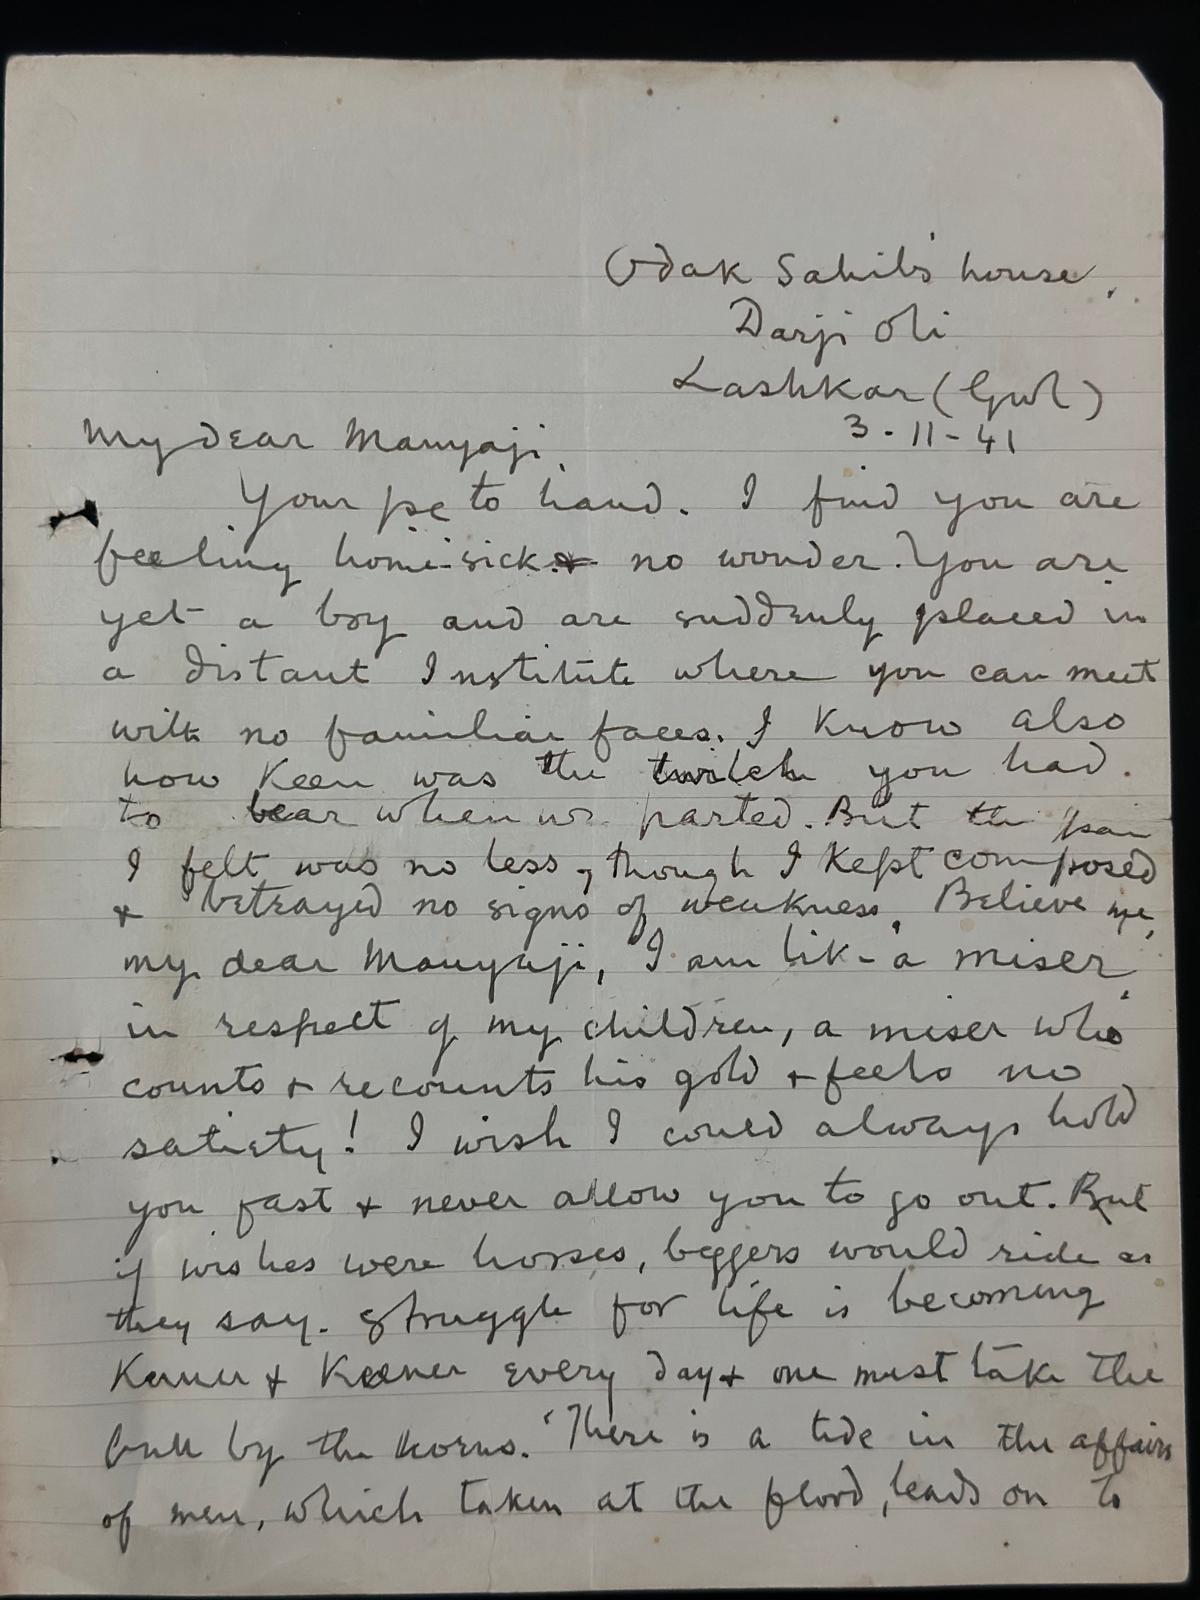 Odak Sahib's house,
Darji Oli
Lashkar (Gwl)
3-11-41
My dear Manyaji,
Your pc to hand. I find you are
feeling home-sick & no wonder. You are
yet a boy and are suddenly placed in
a distant Institute where you can meet
with no familiar faces. I know also
how keen was the twitch you had
to bear when we parted. But the pain
I felt was no less, though I kept composed
& betrayed no signs of weakness. Believe me,
my dear Manyaji, I am like a miser
in respect of my children, a miser who
counts & recounts his gold & feels no
satiety! I wish I could always hold
you fast & never allow you to go out. But
if wishes were horses, beggers would ride as
they say. Struggle for life is becoming
Keener & Keener every day & one must take the
bull by the horns. 'There is a tide in the affairs
of men, which taken at the flood, leads on to